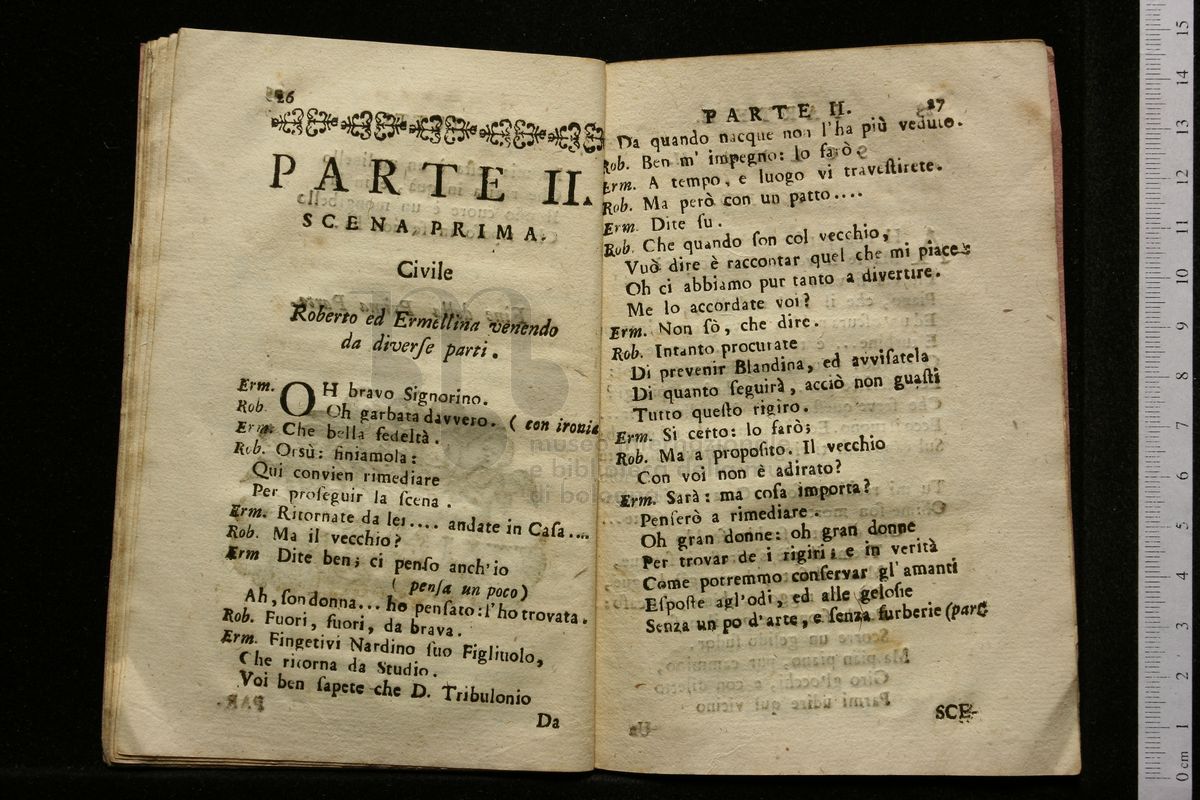 26
PARTE II.
SCENA PRIMA.
Civile
Roberto ed Ermellina venendo
da diverſe parti.
Erm. OH bravo Signorino.
Rob. Oh garbata davvero. (con ironia
Erm. Che bella fedeltà.
Rob. Orsù: finiamola:
Qui convien rimediare
Per proſeguir la ſcena.
Erm. Ritornate da lei.... andate in Caſa....
Rob. Ma il vecchio?
Erm Dite ben; ci penſo anch'io
(penſa un poco)
Ah, ſon donna... ho penſato: l'ho trovata.
Rob. Fuori, fuori, da brava.
Erm. Fingetivi Nardino ſuo Figliuolo,
Che ritorna da Studio.
Voi ben ſapete che D. Tribulonio
Da
PARTE II. 27
Da quando nacque non l'ha più veduto.
Rob. Ben m'impegno: lo farò.
Erm. A tempo, e luogo vi traveſtirete.
Rob. Ma però con un patto....
Erm. Dite ſu.
Rob. Che quando ſon col vecchio,
Vuò dire è raccontar quel che mi piace
Oh ci abbiamo pur tanto a divertire.
Me lo accordate voi?
Erm. Non ſò, che dire.
Rob. Intanto procurate
Di prevenir Blandina, ed avviſatela
Di quanto ſeguirà, acciò non guaſti
Tutto queſto rigiro.
Erm. Si certo: lo farò;
Rob. Ma a propoſito. Il vecchio
Con voi non è adirato?
Erm. Sarà: ma coſa importa?
Penſerò a rimediare.
Oh gran donne: oh gran donne
Per trovar de i rigiri; e in verità
Come potremmo conſervar gl'amanti
Eſpoſte agl'odi, ed alle geloſie
Senza un po d'arte, e ſenza furberie (parte
SCE-